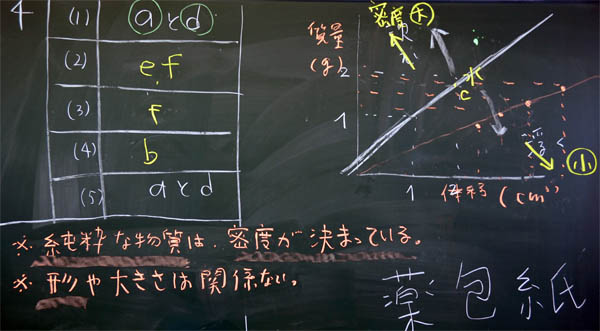 4
(1) aとd
(2) e,f
(3) f
(4) b
(5) aとd
質量
(g)
密度 大
2
1
c
小
1
体積 (cm³)
※ 純粋な物質は、密度が決まっている。
※ 形や大きさは関係ない。
薬包紙